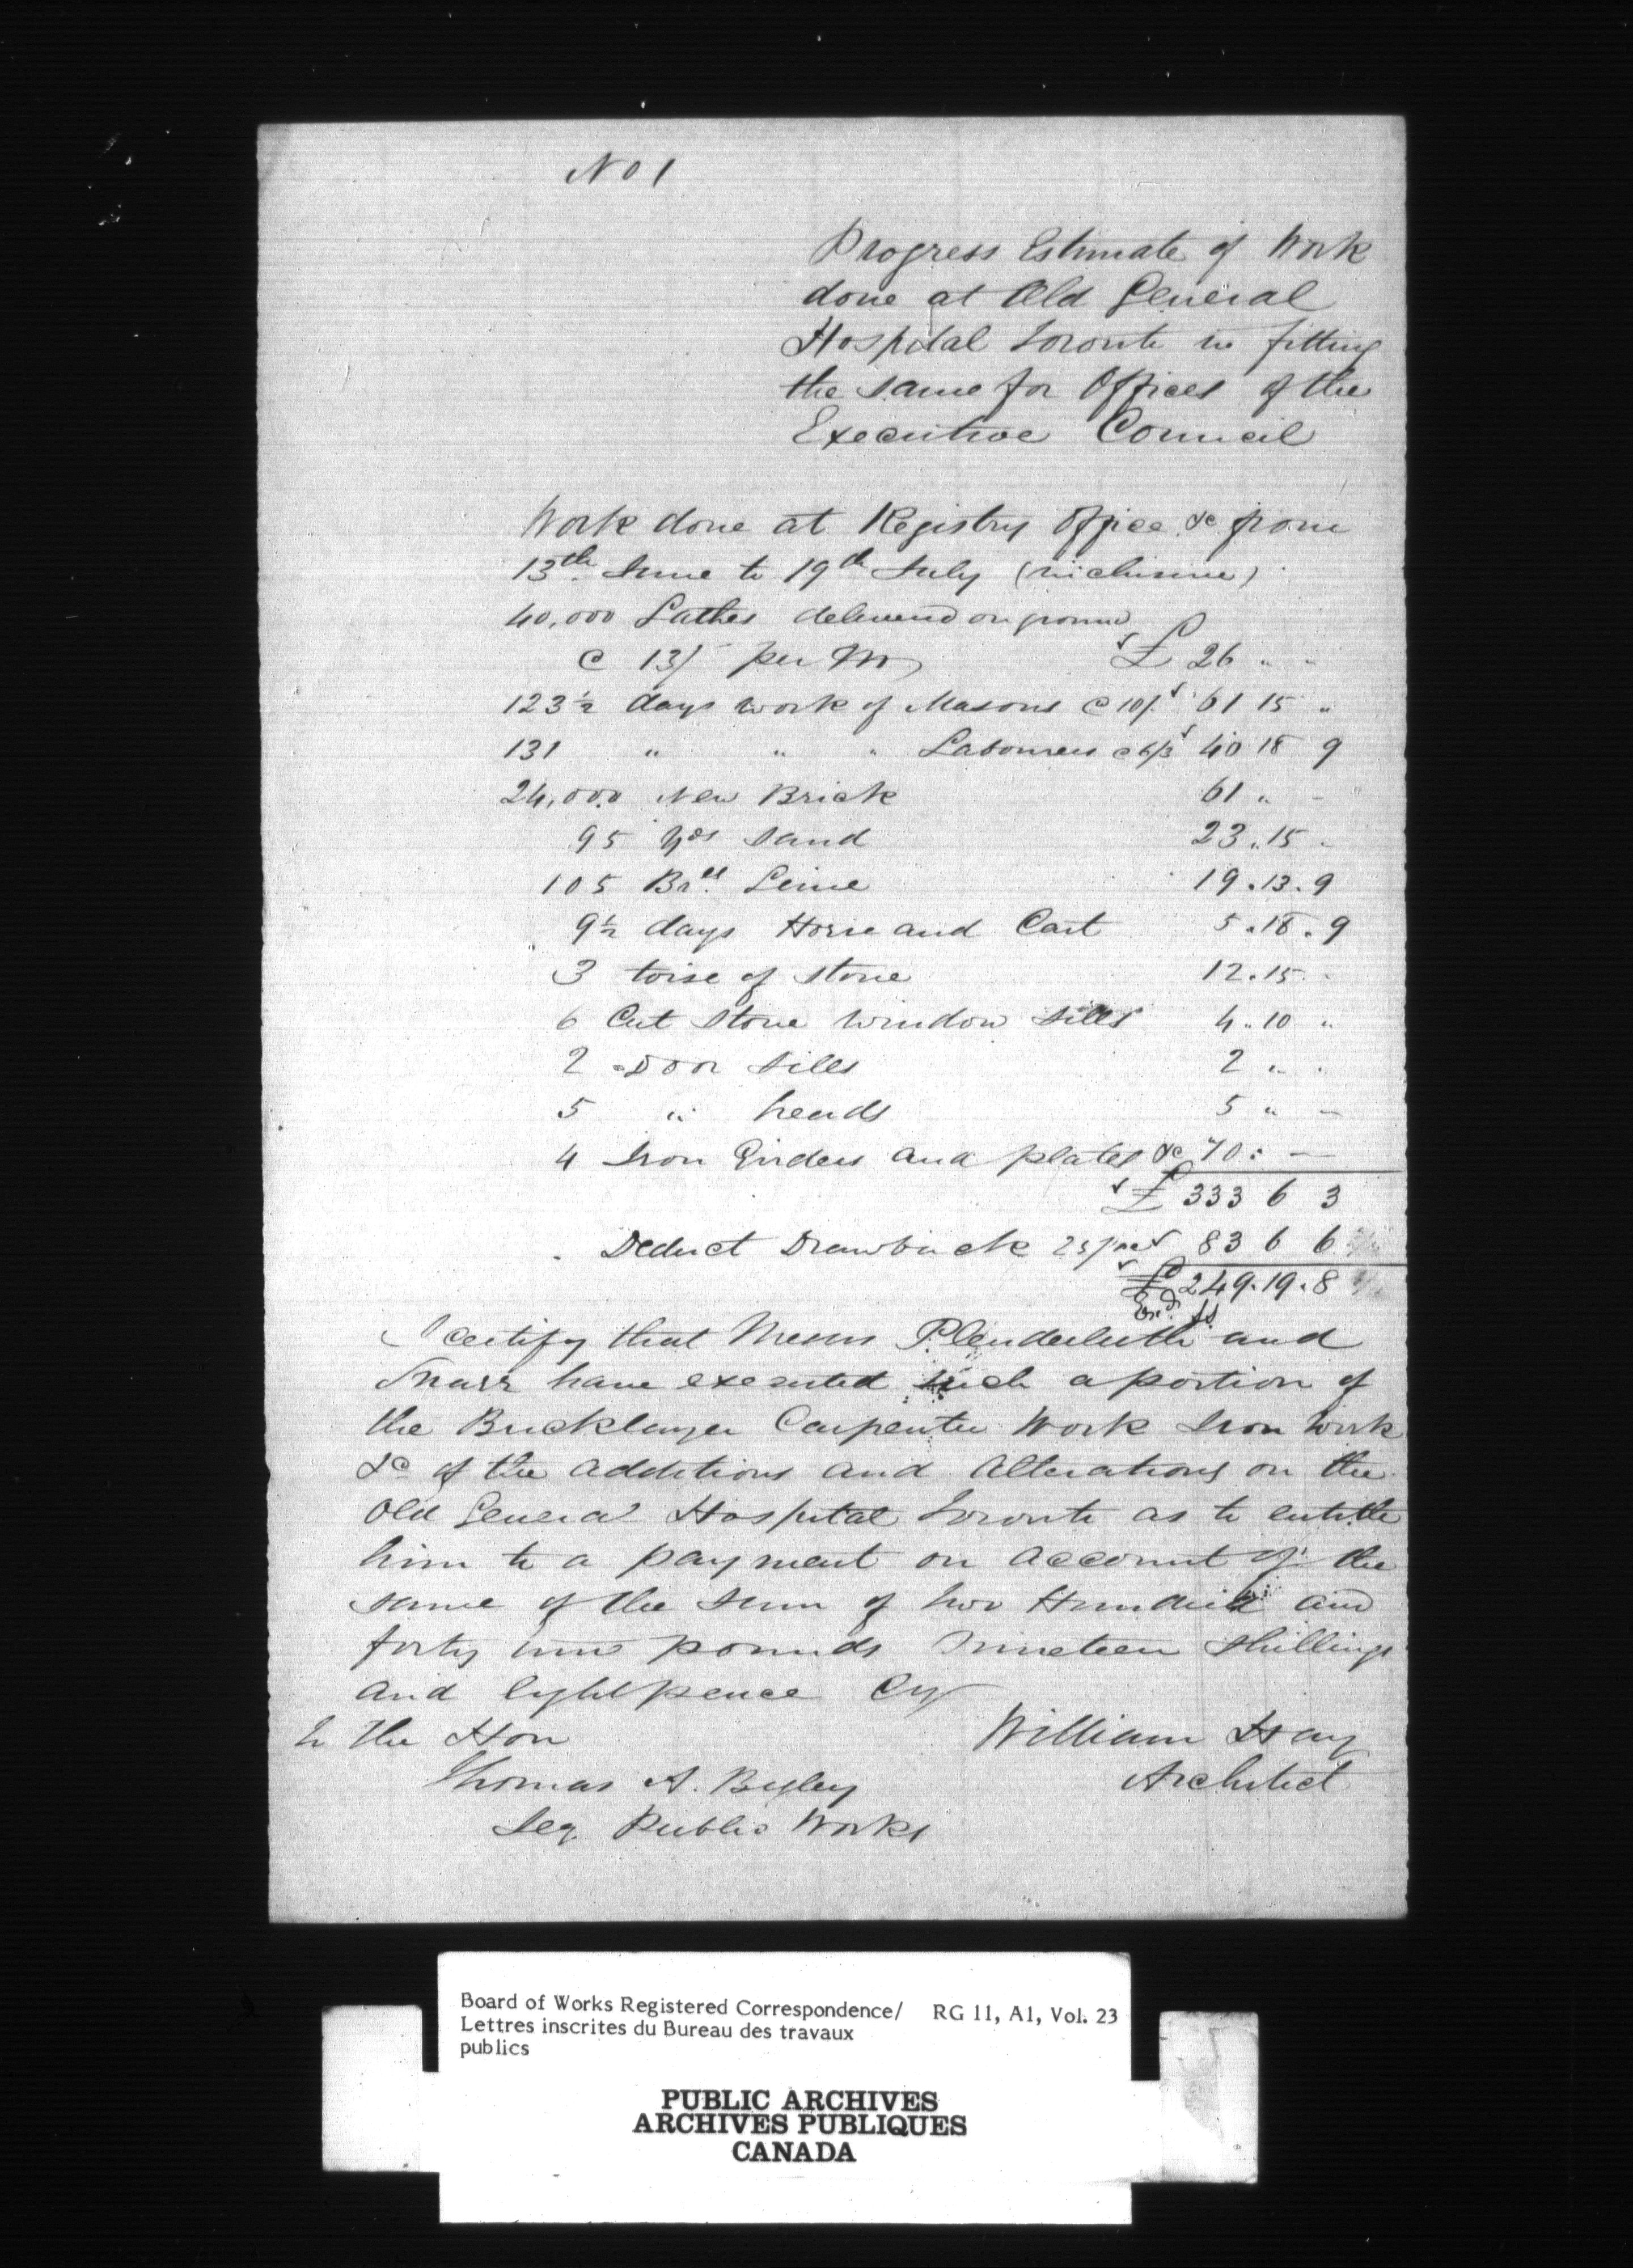 No 1
Progress Estimate of Work
done at Old General
Hospital Toronto in fitting
the same for Offices of the
Executive Council
Work done at Registry Office &c from
13th June to 19th July (inclusive)
40,000 Lathes delivered on ground
@ 13/ per M £ 26 " "
123½ days work of Masons @ 10/ 61 15 "
131 " " " Labourers @ 6/3 40 18 9
24,000 New Brick 61 " -
95 yds sand 23 " 15 -
105 Brls Lime 19 . 13 . 9
9½ days Horse and Cart 5 . 18 . 9
3 toise of stone 12 . 15 .
6 Cut Stone Window Sills 4 . 10 "
2 Door Sills 2 " "
5 " heads 5 " -
4 Iron Girders and plates &c 70 : -
£ 333 6 3
Deduct Drawback 25 pct 83 6 6
£ 249 . 19 . 8
I certify that Messrs Plenderleith and
Snarr have executed such a portion of
the Bricklayer Carpenter Work Iron Work
&c of the additions and Alterations on the
Old General Hospital Toronto as to entitle
him to a payment on account of the
same of the sum of two Hundred and
forty nine pounds nineteen shillings
and eightpence Cy
To the Hon William Hay
Thomas A. Begley Architect
Secy Public Works
Board of Works Registered Correspondence/ RG 11, A1, Vol. 23
Lettres inscrites du Bureau des travaux
publics
PUBLIC ARCHIVES
ARCHIVES PUBLIQUES
CANADA